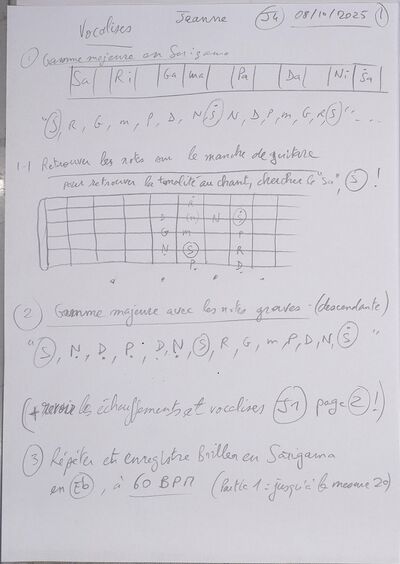 Vocalises Jeanne J4 08/10/2025 1
1 Gamme majeure en Sarigama
Sa | Ri | Ga | ma | Pa | Da | Ni | Sa
"S, R, G, m, P, D, N, Ṡ, N, D, P, m, G, R, S" ...
1-1 Retrouver les notes sur le manche de guitare
pour retrouver la tonalité au chant, chercher le "Sa", S !
D (m) N Ṡ
G m P
Ṇ S R
P̣ Ḍ
2 Gamme majeure avec les notes graves (descendante)
"S, Ṇ, Ḍ, P̣, Ḍ, Ṇ, S, R, G, m, P, D, N, Ṡ"
(+ revoir les échauffements et vocalises J1 page 2 !)
3 Répéter et enregistre Briller en Sarigama
en Eb, à 60 BPM (Partie 1 = jusqu'à la mesure 20)